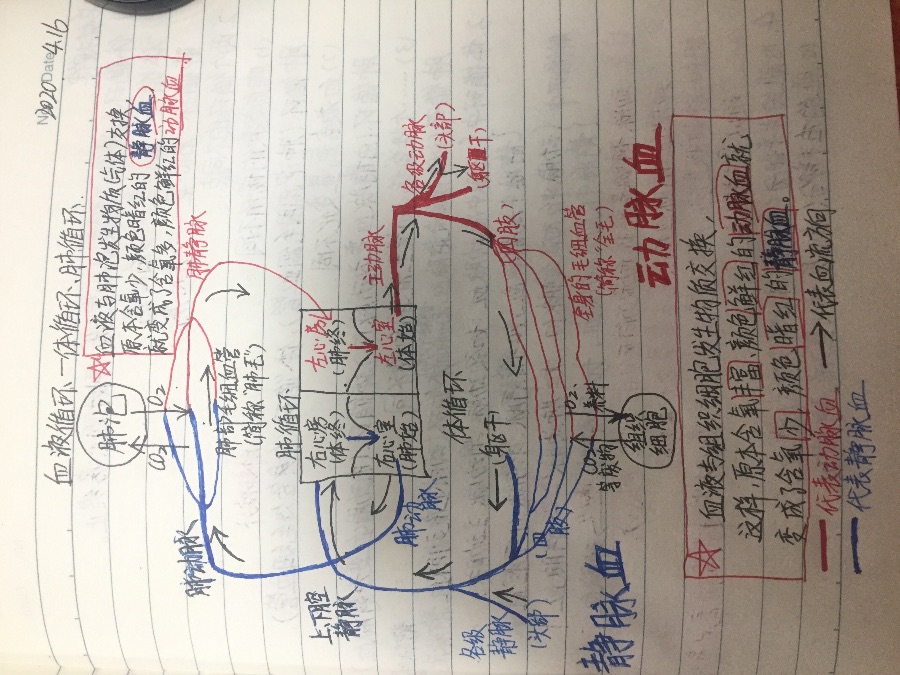 No. Date 2020.4.16
血液循环—体循环、肺循环.
血液与肺泡发生物质(气体)交换
原本含氧少, 颜色暗红的 静脉血
就变成了含氧多, 颜色鲜红的动脉血
肺泡
CO₂ O₂
肺动脉
肺静脉
肺部毛细血管
(简称"肺毛")
肺循环
右心房
(体终)
左心房
(肺终)
左心室
(体始)
右心室
(肺始)
主动脉
各级动脉
(头部)
(躯干)
(四肢)
上、下腔
静脉
肺动脉
体循环
躯干
(四肢)
各级
静脉
(头部)
全身的毛细血管
(简称"全毛")
CO₂
O₂
养料
组织
细胞
静脉血
动脉血
血液与组织细胞发生物质交换,
这样 原本含氧丰富、颜色鲜红的动脉血就
变成了含氧少, 颜色暗红的静脉血。
代表动脉血
代表静脉血
代表血流方向